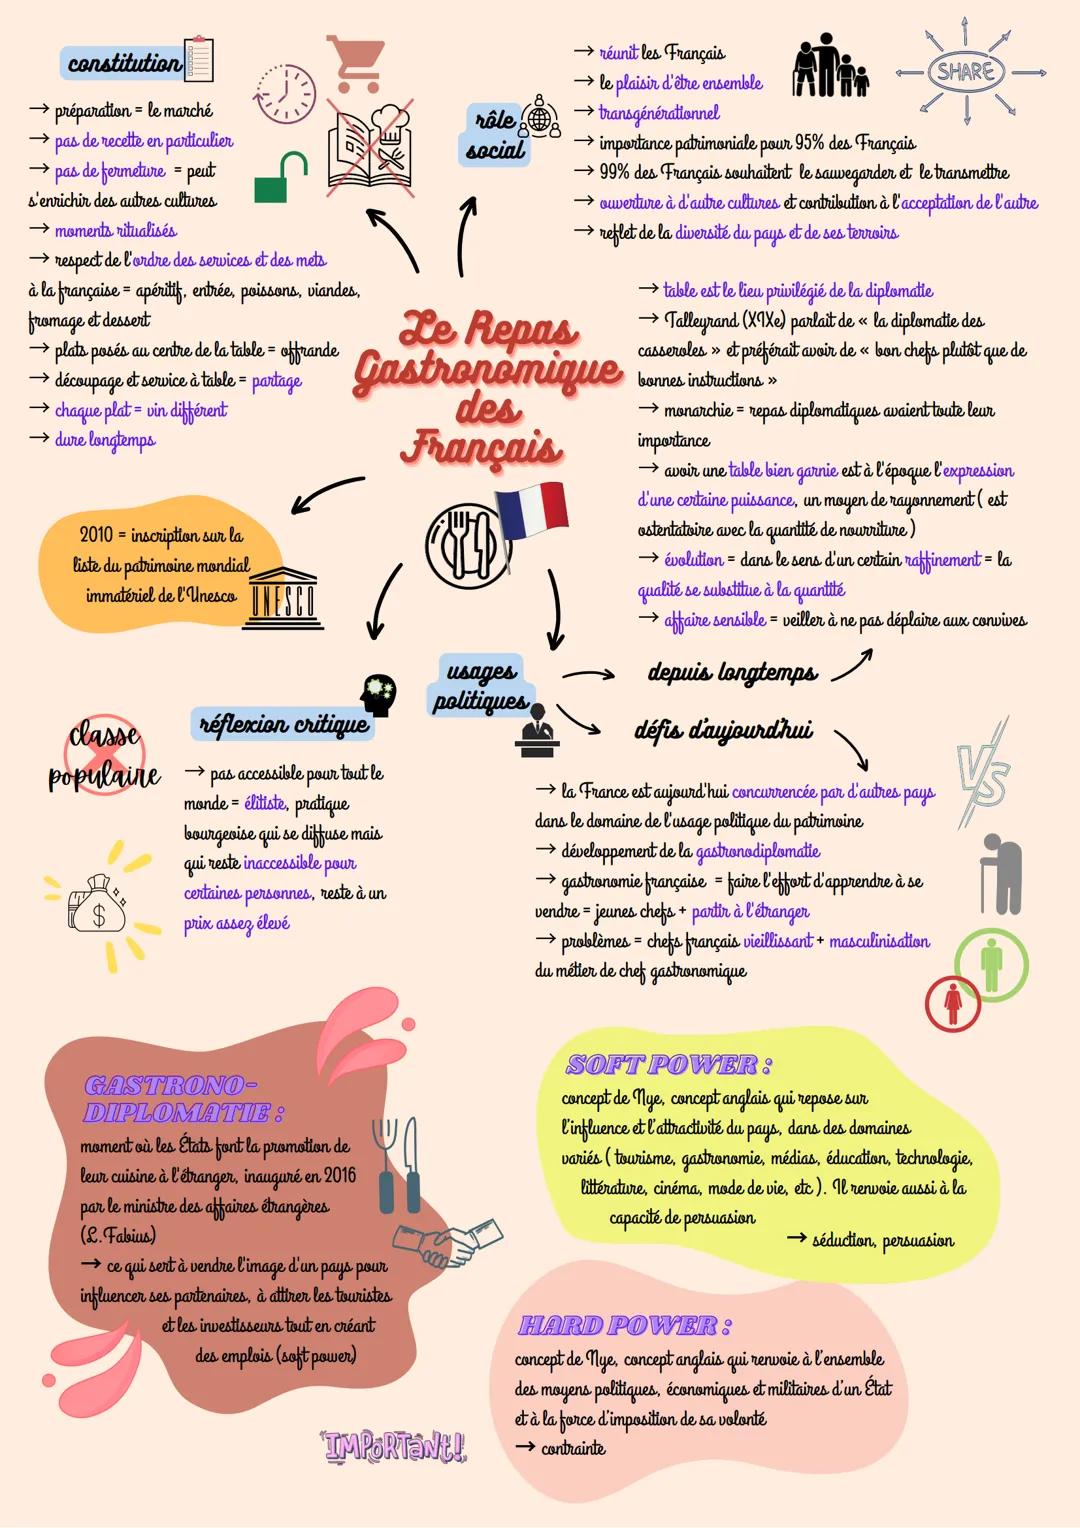 constitution
→ préparation = le marché
→ pas de recette en particulier
→ pas de fermeture = peut
s'enrichir des autres cultures
→ moments ritualisés
→ respect de l'ordre des services et des mets
à la française = apéritif, entrée, poissons, viandes,
fromage et dessert
→ plats posés au centre de la table = offrande
→ découpage et service à table = partage
→ chaque plat = vin différent
→ dure longtemps
rôle
social
→ réunit les Français
→ le plaisir d'être ensemble
→ transgénérationnel
→ importance patrimoniale pour 95% des Français
→ 99% des Français souhaitent le sauvegarder et le transmettre
→ ouverture à d'autre cultures et contribution à l'acceptation de l'autre
→ reflet de la diversité du pays et de ses terroirs
SHARE
Le Repas
Gastronomique
des
Français
→ table est le lieu privilégié de la diplomatie
→ Talleyrand (XIXe) parlait de « la diplomatie des
casseroles » et préférait avoir de « bon chefs plutôt que de
bonnes instructions »
→ monarchie = repas diplomatiques avaient toute leur
importance
→ avoir une table bien garnie est à l'époque l'expression
d'une certaine puissance, un moyen de rayonnement ( est
ostentatoire avec la quantité de nourriture )
→ évolution = dans le sens d'un certain raffinement = la
qualité se substitue à la quantité
→ affaire sensible = veiller à ne pas déplaire aux convives
2010 = inscription sur la
liste du patrimoine mondial
immatériel de l'Unesco
UNESCO
usages
politiques
depuis longtemps
défis d'aujourd'hui
réflexion critique
classe
populaire
→ pas accessible pour tout le
monde = élitiste, pratique
bourgeoise qui se diffuse mais
qui reste inaccessible pour
certaines personnes, reste à un
prix assez élevé
$
VS
→ la France est aujourd'hui concurrencée par d'autres pays
dans le domaine de l'usage politique du patrimoine
→ développement de la gastronodiplomatie
→ gastronomie française = faire l'effort d'apprendre à se
vendre = jeunes chefs + partir à l'étranger
→ problèmes = chefs français vieillissant + masculinisation
du métier de chef gastronomique
GASTRONO-
DIPLOMATIE :
moment où les États font la promotion de
leur cuisine à l'étranger, inauguré en 2016
par le ministre des affaires étrangères
(L.Fabius)
→ ce qui sert à vendre l'image d'un pays pour
influencer ses partenaires, à attirer les touristes
et les investisseurs tout en créant
des emplois (soft power)
SOFT POWER :
concept de Nye, concept anglais qui repose sur
l'influence et l'attractivité du pays, dans des domaines
variés ( tourisme, gastronomie, médias, éducation, technologie,
littérature, cinéma, mode de vie, etc ). Il renvoie aussi à la
capacité de persuasion
→ séduction, persuasion
HARD POWER :
concept de Nye, concept anglais qui renvoie à l'ensemble
des moyens politiques, économiques et militaires d'un État
et à la force d'imposition de sa volonté
→ contrainte
IMPORTANT!